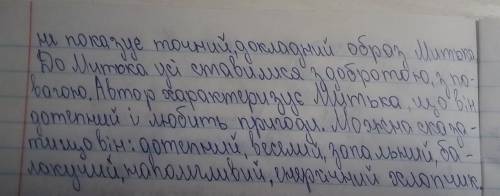 не показує точний, докладний образ Митька.
До Митька усі ставилися з добротою, з по-
вагою. Автор характеризує Митька, що він
дотепний і любить пригоди. Можна сказа-
ти що він: дотепний, веселий, запальний, ба-
лакучий, наполегливий, енергічний хлопчик.